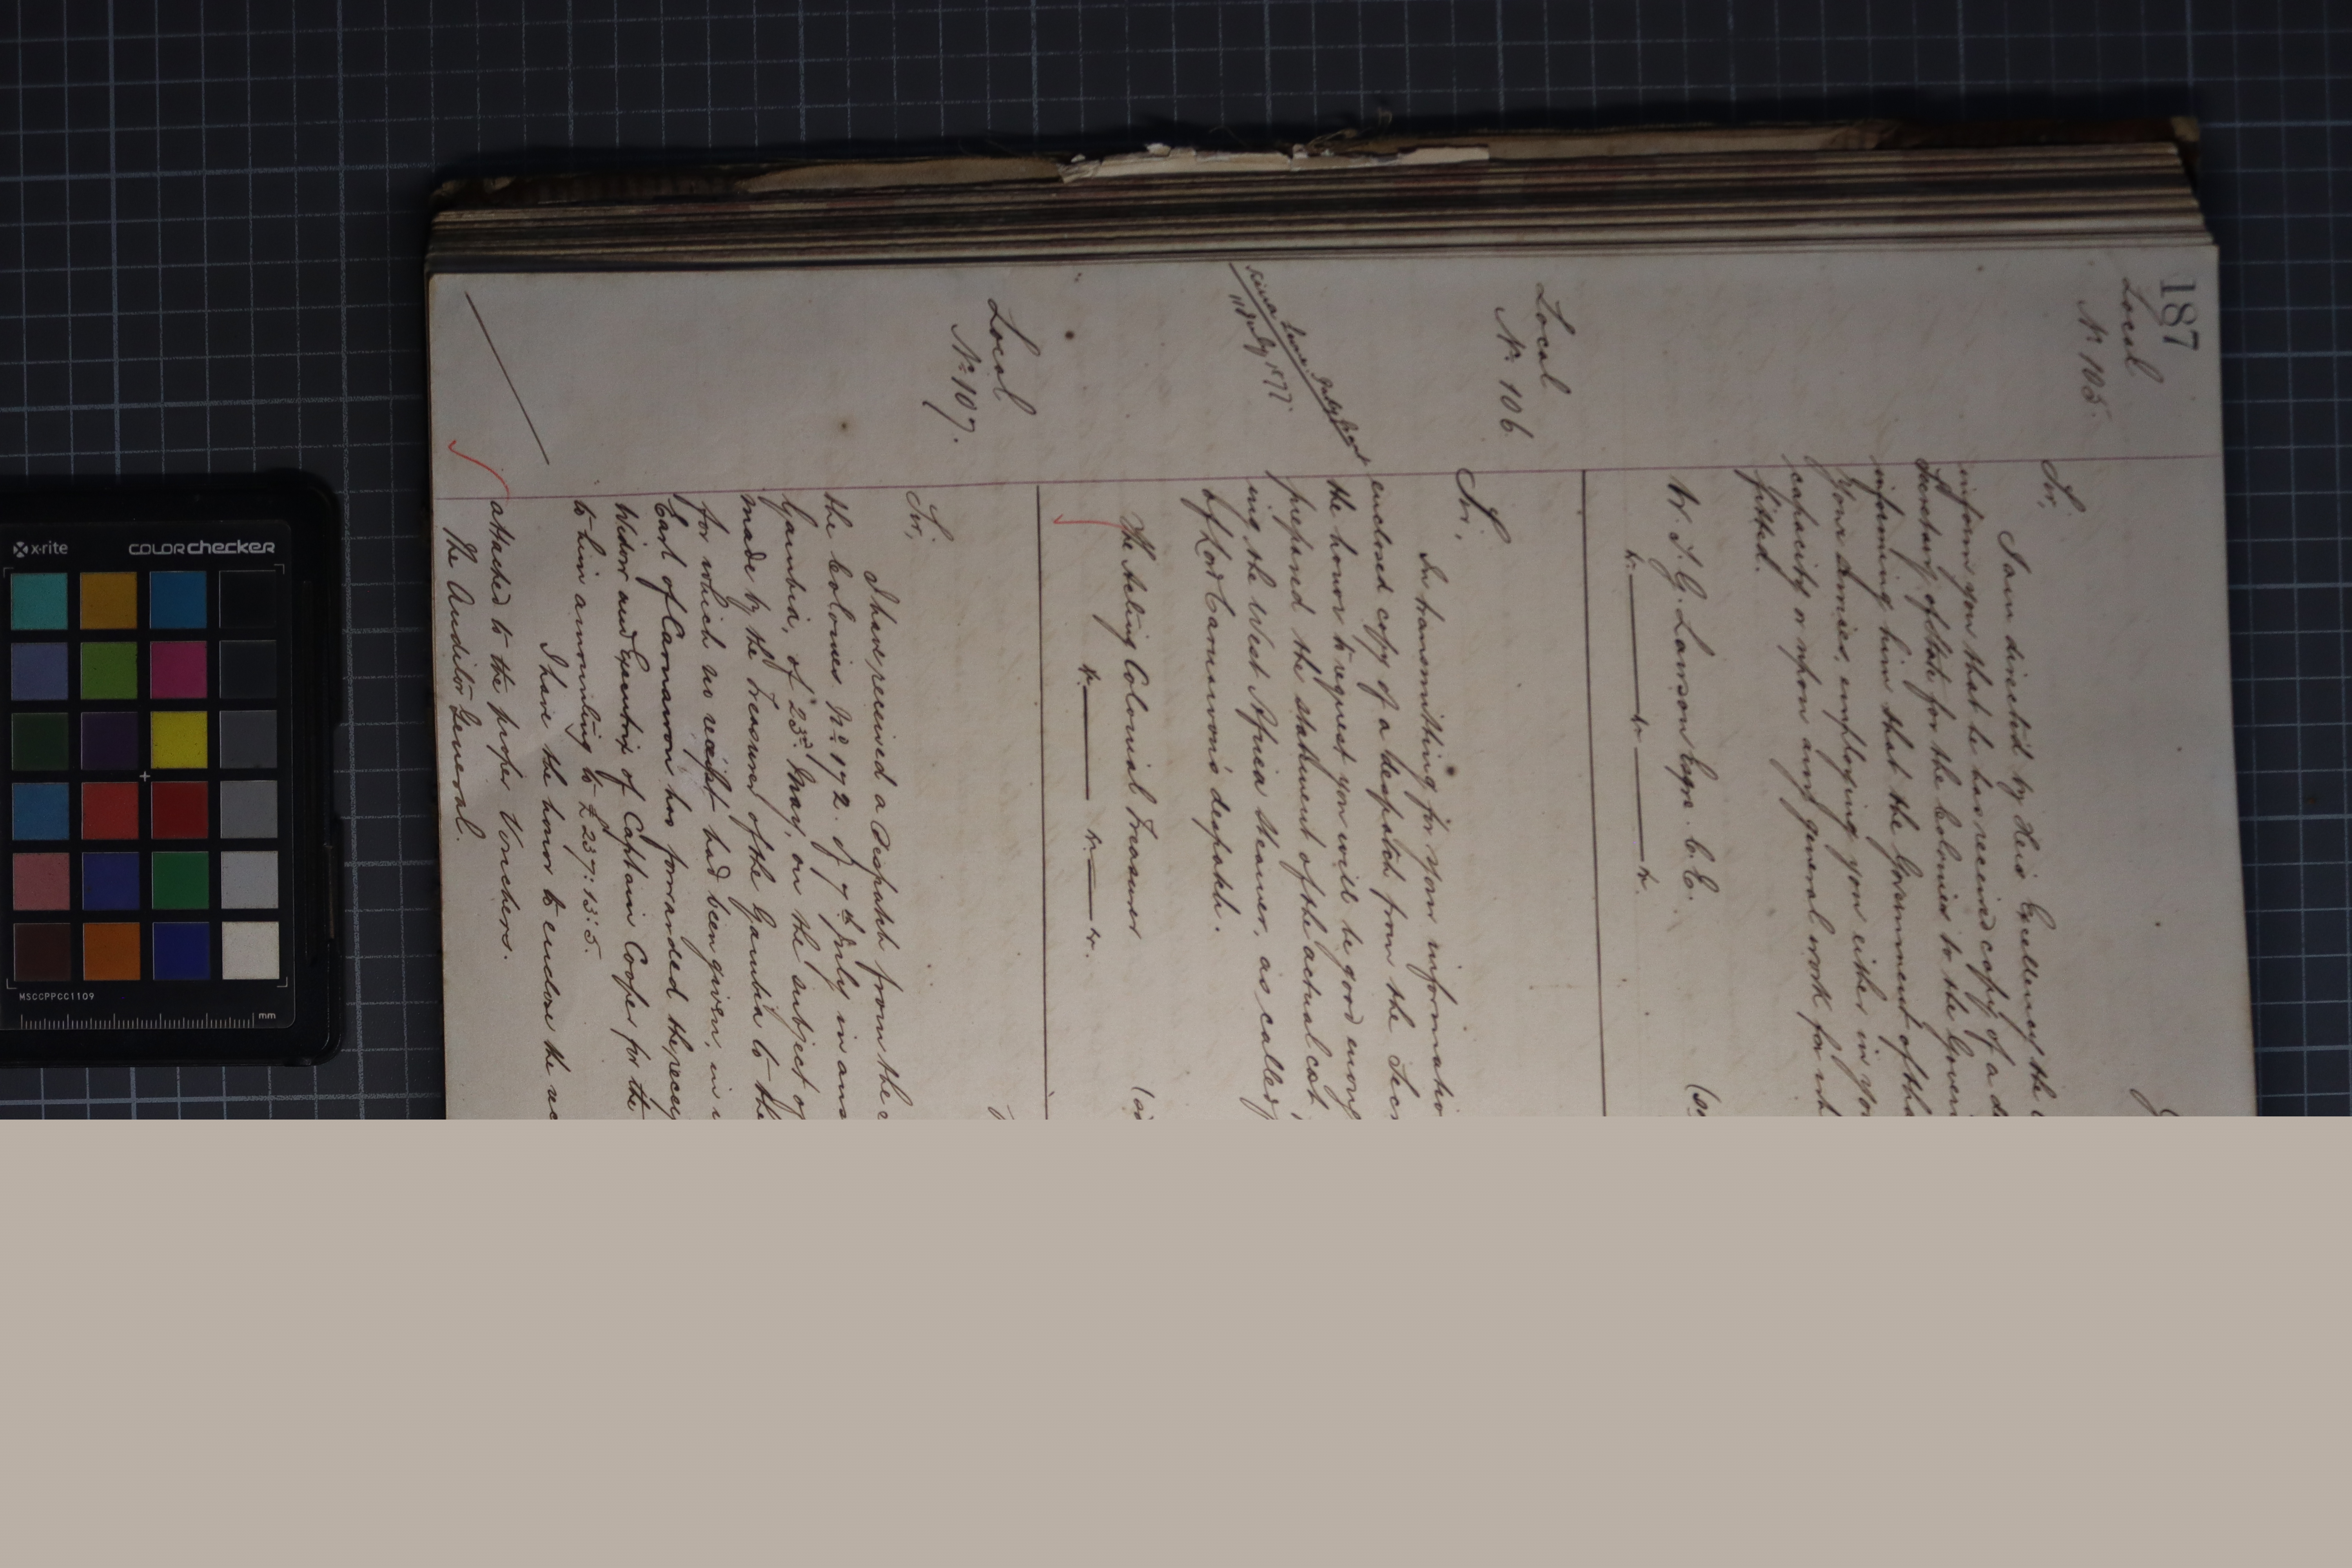 187
Local
No 105.
Sir,
I am directed by His Excellency the
inform you that he has received copy of a
Secretary of State for the Colonies to the Gover
informing him that the Government of tha
Your Services, employing you either in you
capacity or upon any general work for wh
fitted.
W. T. G. Lawson Esqre. C. E.
Local
No 106
11 July 1877
Sir,
In transmitting for your informatio
enclosed copy of a despatch from the Secr
the honor to request you will be good enoug
prepared the statement of the actual cost
ing the West Africa Steamer, as called
of Lord Carnarvon's despatch.
The Acting Colonial Treasurer
Local
No 107.
Sir,
I have received a Despatch from the
the Colonies No 172. of 7th July in ans
Gambia, of 23rd May, on the subject of
made by the Treasurer of the Gambia to the
for which no receipt had been given, in
Earl of Carnarvon has forwarded the receip
Widow and Executrix of Captain Cooper for the
to him amounting to £237:13:5.
I have the honor to enclose the
attached to the proper Vouchers.
The Auditor General.
x-rite
colorchecker
MSCCPPCC1109
mm